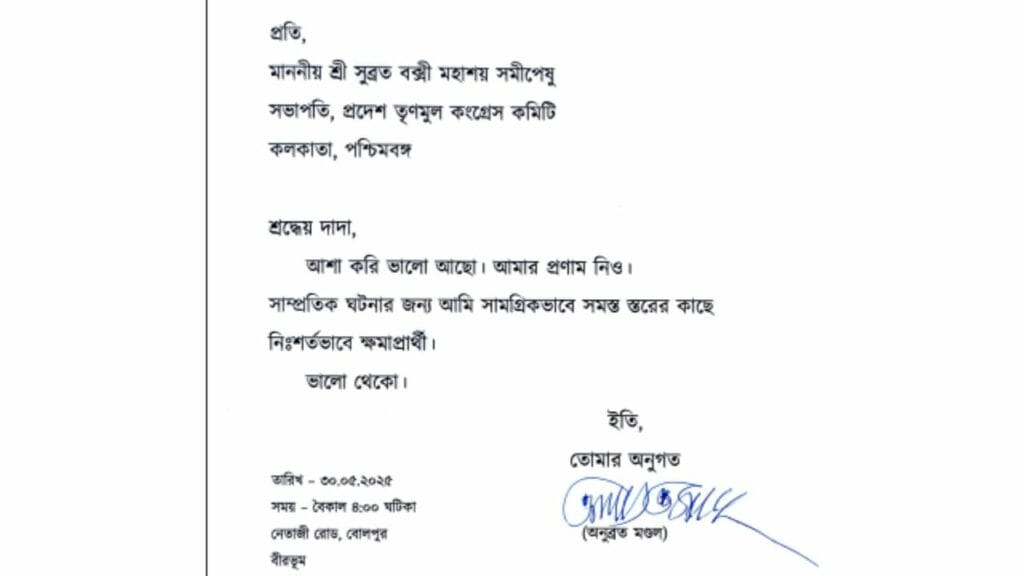 প্রতি,
মাননীয় শ্রী সুব্রত বক্সী মহাশয় সমীপেষু
সভাপতি, প্রদেশ তৃণমুল কংগ্রেস কমিটি
কলকাতা, পশ্চিমবঙ্গ
শ্রদ্ধেয় দাদা,
আশা করি ভালো আছো। আমার প্রণাম নিও।
সাম্প্রতিক ঘটনার জন্য আমি সামগ্রিকভাবে সমস্ত স্তরের কাছে
নিঃশর্তভাবে ক্ষমাপ্রার্থী।
ভালো থেকো।
ইতি,
তোমার অনুগত
(অনুব্রত মণ্ডল)
তারিখ – ৩০.০৫.২০২৫
সময় – বৈকাল ৪:০০ ঘটিকা
নেতাজী রোড, বোলপুর
বীরভূম